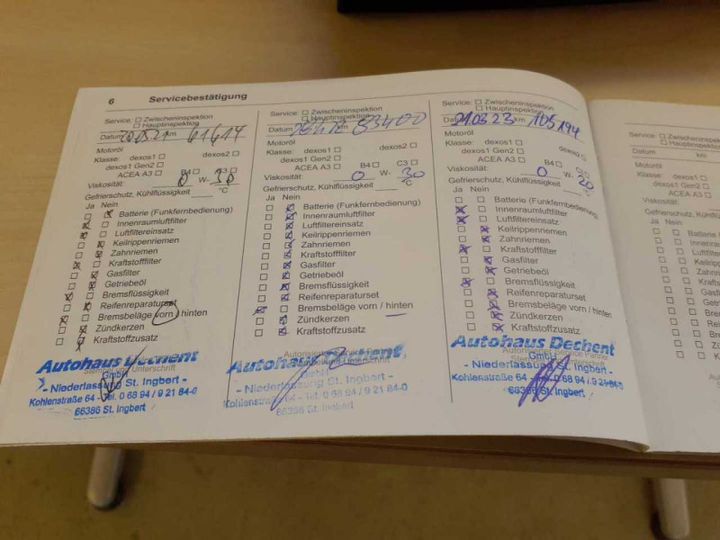 6 Servicebestätigung
Service: ☐ Zwischeninspektion
☐ Hauptinspektion
Datum km 61614
Motoröl
Klasse: dexos1 ☐ dexos2 ☐
dexos1 Gen2 ☐ B4 ☐ C3 ☐
ACEA A3 ☐
Viskosität: 0 W- 30
Gefrierschutz, Kühlflüssigkeit °C
Ja Nein
Batterie (Funkfernbedienung)
Innenraumluftfilter
Luftfiltereinsatz
Keilrippenriemen
Zahnriemen
Kraftstofffilter
Gasfilter
Getriebeöl
Bremsflüssigkeit
Reifenreparaturset
Bremsbeläge vorn / hinten
Zündkerzen
Kraftstoffzusatz
Autohaus Dechent
GmbH
- Niederlassung St. Ingbert -
Kohlenstraße 64 - Tel. 0 68 94 / 9 21 84-0
66386 St. Ingbert
Service: ☐ Zwischeninspektion
☐ Hauptinspektion
Datum km 83400
Motoröl
Klasse: dexos1 ☐ dexos2 ☐
dexos1 Gen2 ☐
ACEA A3 ☐ B4 ☐ C3 ☐
Viskosität: 0 W- 30
Gefrierschutz, Kühlflüssigkeit °C
Ja Nein
Batterie (Funkfernbedienung)
Innenraumluftfilter
Luftfiltereinsatz
Keilrippenriemen
Zahnriemen
Kraftstofffilter
Gasfilter
Getriebeöl
Bremsflüssigkeit
Reifenreparaturset
Bremsbeläge vorn / hinten
Zündkerzen
Kraftstoffzusatz
Autohaus Dechent
GmbH
- Niederlassung St. Ingbert -
Kohlenstraße 64 - Tel. 0 68 94 / 9 21 84-0
66386 St. Ingbert
Service: ☐ Zwischeninspektion
☐ Hauptinspektion
Datum 21.03.23 km 105194
Motoröl
Klasse: dexos1 ☐ dexos2 ☐
dexos1 Gen2 ☐
ACEA A3 ☐ B4 ☐ C3 ☐
Viskosität: 0 W- 20
Gefrierschutz, Kühlflüssigkeit °C
Ja Nein
Batterie (Funkfernbedienung)
Innenraumluftfilter
Luftfiltereinsatz
Keilrippenriemen
Zahnriemen
Kraftstofffilter
Gasfilter
Getriebeöl
Bremsflüssigkeit
Reifenreparaturset
Bremsbeläge vorn / hinten
Zündkerzen
Kraftstoffzusatz
Autohaus Dechent
GmbH
- Niederlassung St. Ingbert -
Kohlenstraße 64 - Tel. 0 68 94 / 9 21 84-0
66386 St. Ingbert
Service: ☐ Zwischeninspektion
☐ Hauptinspektion
Datum km
Motoröl
Klasse: dexos1 ☐
dexos1 Gen2 ☐
ACEA A3 ☐
Viskosität:
Gefrierschutz, Kühlflüssig
Ja Nein
Batterie
Innenrau
Luftfilter
Keilrippe
Zahnriem
Kraftstof
Gasfilter
Getriebe
Bremsflü
Reifenre
Bremsbe
Zündker
Kraftstof